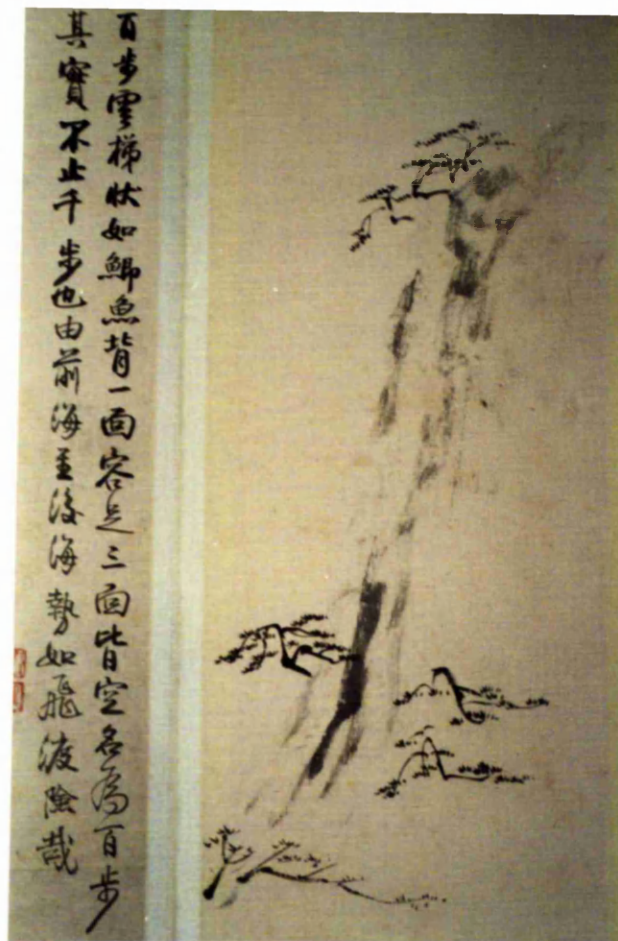 百步雲梯狀如鯽魚背一面容足三面皆空名為百步
其實不止千步也由前海至後海勢如飛渡險哉